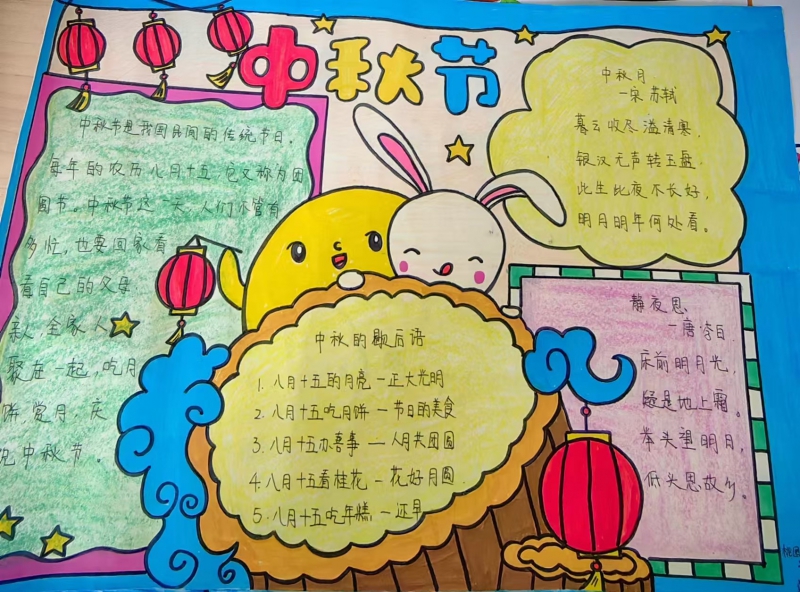 中秋节
中秋节是我国民间的传统节日。
每年的农历八月十五,它又称为团
圆节。中秋节这一天,人们不管有
多忙,也要回家看
看自己的父母
亲,全家人
聚在一起,吃月
饼,赏月,庆
祝中秋节。
中秋月
—宋 苏轼
暮云收尽溢清寒,
银汉无声转玉盘。
此生此夜不长好,
明月明年何处看。
中秋的歇后语
1. 八月十五的月亮—正大光明
2. 八月十五吃月饼—节日的美食
3. 八月十五办喜事—人月共团圆
4. 八月十五看桂花—花好月圆
5. 八月十五吃年糕—还早
静夜思
—唐 李白
床前明月光,
疑是地上霜。
举头望明月,
低头思故乡。